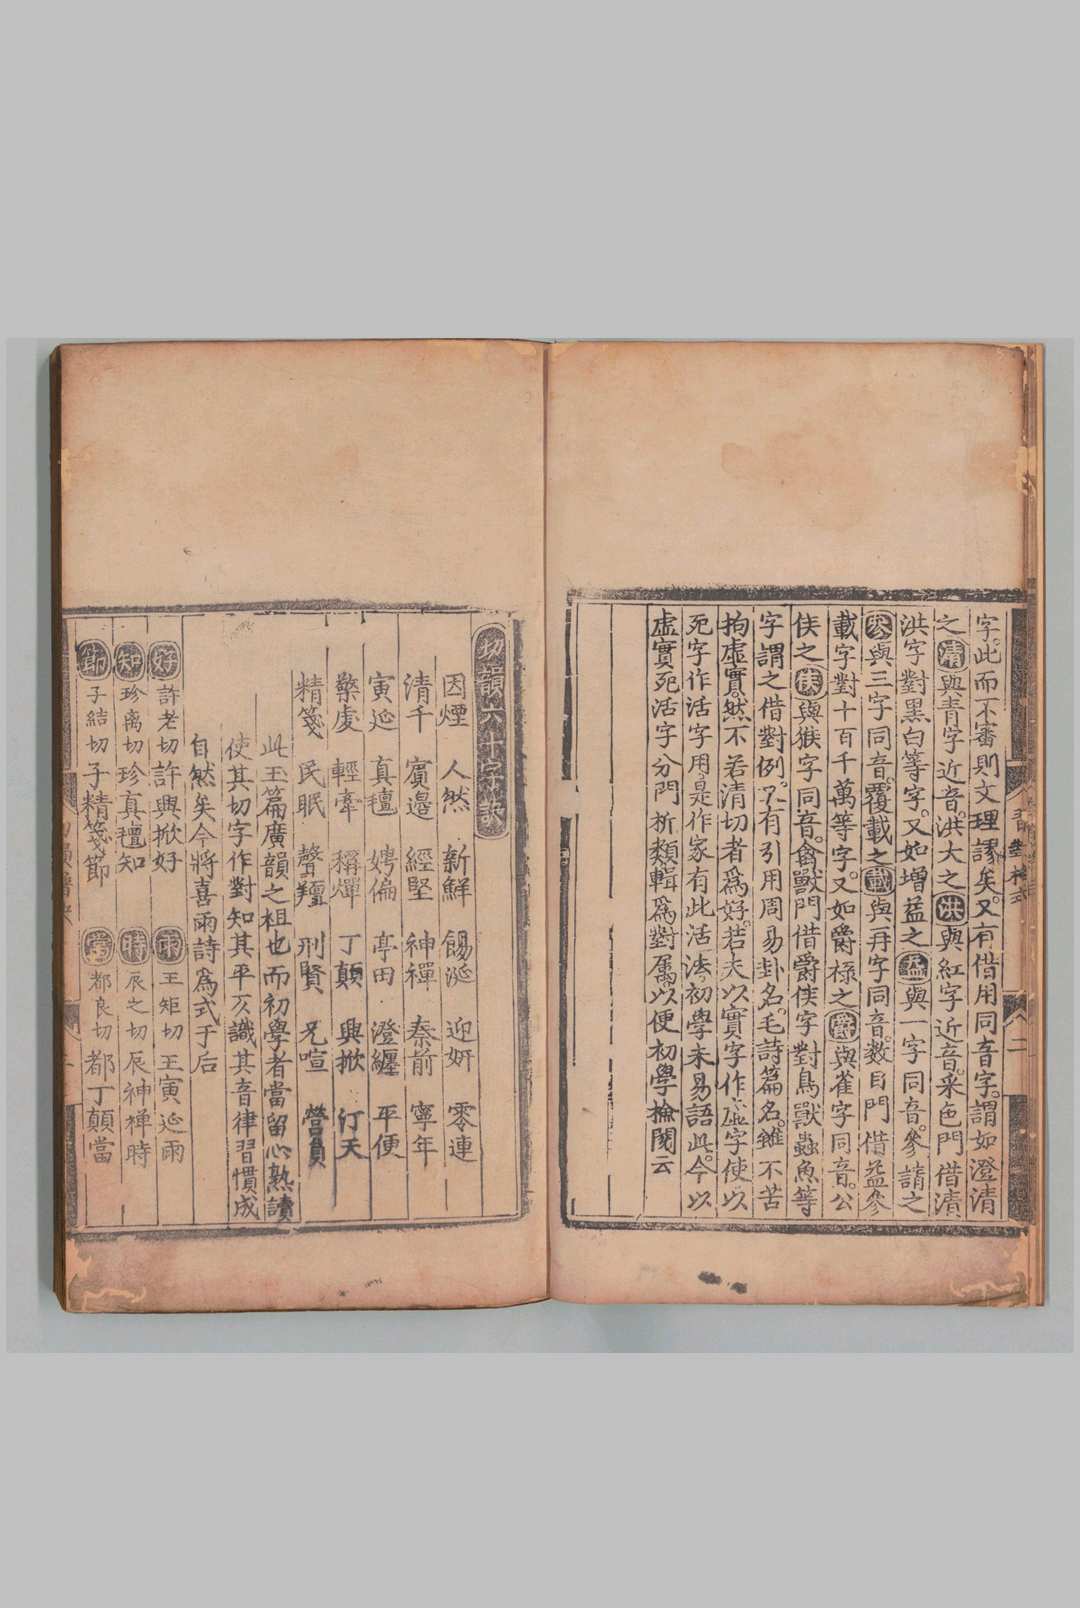 字此而不審則文理謬矣又有借用同音字謂如澄清
之清與青字近音洪大之洪與紅字近音采色門借清
洪字對黑白等字又如增益之益與一字同音參請之
參與三字同音覆載之載與再字同音數目門借益參
載字對十百千萬等字又如爵祿之爵與雀字同音公
侯之侯與猴字同音禽獸門借爵侯字對鳥獸蟲魚等
字謂之借對例又有引用周易卦名毛詩篇名雖不苦
拘虛實然不若清切者爲好若夫以實字作虛字使以
死字作活字用是作家有此活法初學未易語此今以
虛實死活字分門析類輯爲對屬以便初學檢閱云
切韻六十字訣
因煙 人然 新鮮 餳涎 迎妍 零連
清千 賓邉 經堅 神禪 秦前 寧年
寅延 真氊 娉偏 亭田 澄纏 平便
檠虔 輕牽 稱燀 丁顛 興掀 汀天
精箋 民眠 聲羶 刑賢 兄喧 營員
此玉篇廣韻之祖也而初學者當留心熟讀
使其切字作對知其平仄識其音律習慣成
自然矣今將喜雨詩爲式于后
好 許老切許興掀好 雨 王矩切王寅延雨
知 珍离切珍真氊知 時 辰之切辰神禅時
節 子結切子精箋節 當 都良切都丁顛當